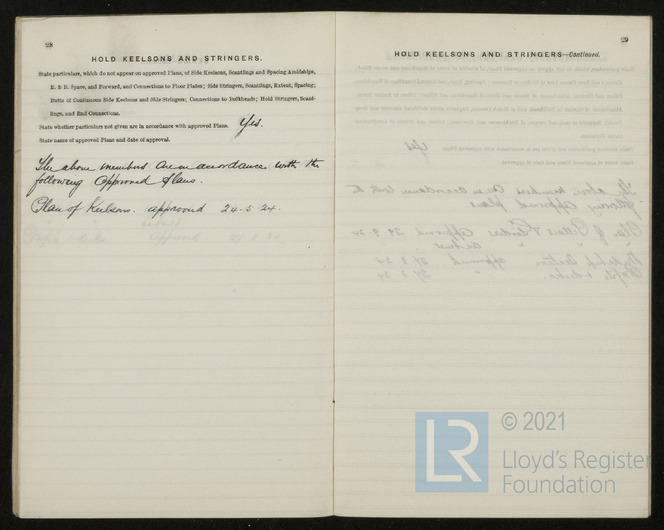 28
HOLD KEELSONS AND STRINGERS.
State particulars, which do not appear on approved Plans, of Side Keelsons, Scantlings and Spacing Amidships,
E. & B. Space, and Forward, and Connections to Floor Plates; Side Stringers, Scantlings, Extent, Spacing;
Butts of Continuous Side Keelsons and Side Stringers; Connections to Bulkheads; Hold Stringers, Scant-
lings, and End Connections.
State whether particulars not given are in accordance with approved Plans. Yes.
State name of approved Plans and date of approval.
The above members are in accordance with the
following Approved Plans.
Plan of Keelsons. approved 24-5-24.
29
HOLD KEELSONS AND STRINGERS—Continued.
LR © 2021
Lloyd's Register
Foundation